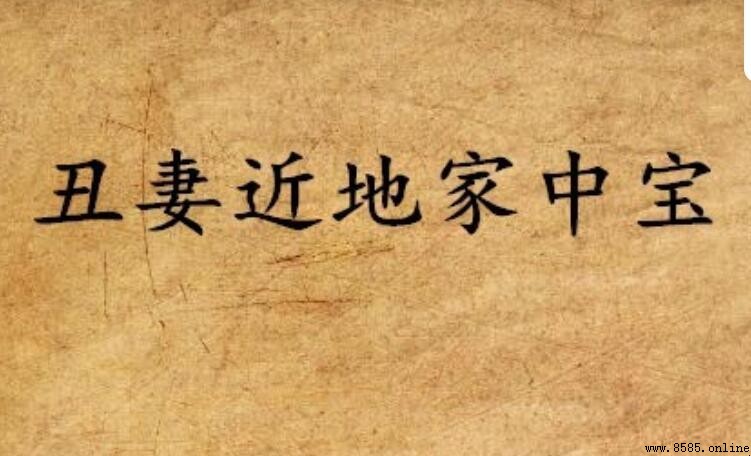 丑妻近地家中宝
www.8585.online